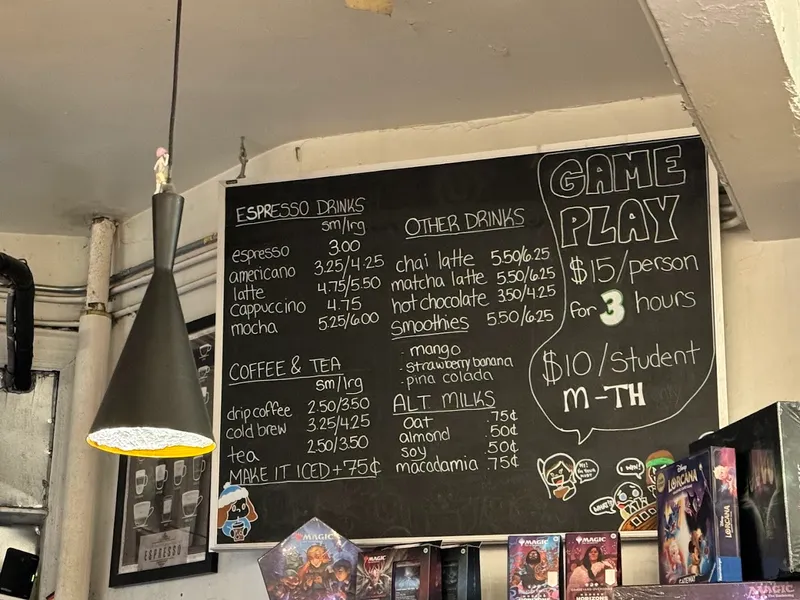 ESPRESSO DRINKS
sm/lrg
espresso 3.00
americano 3.25/4.25
latte 4.75/5.50
cappuccino 4.75
mocha 5.25/6.00
COFFEE & TEA
sm/lrg
drip coffee 2.50/3.50
cold brew 3.25/4.25
tea 2.50/3.50
MAKE IT ICED +75¢
OTHER DRINKS
chai latte 5.50/6.25
matcha latte 5.50/6.25
hot chocolate 3.50/4.25
smoothies 5.50/6.25
- mango
- strawberry banana
- pina colada
ALT MILKS
oat .75¢
almond .50¢
soy .50¢
macadamia .75¢
GAME
PLAY
$15/person
for 3 hours
$10/student
M-TH
WHAT?
ESPRESSO
MAGIC
MAGIC
MAGIC
HORIZONS
HORIZONS
Disney
LORCANA
GATEWAY
LORCANA
MAGIC